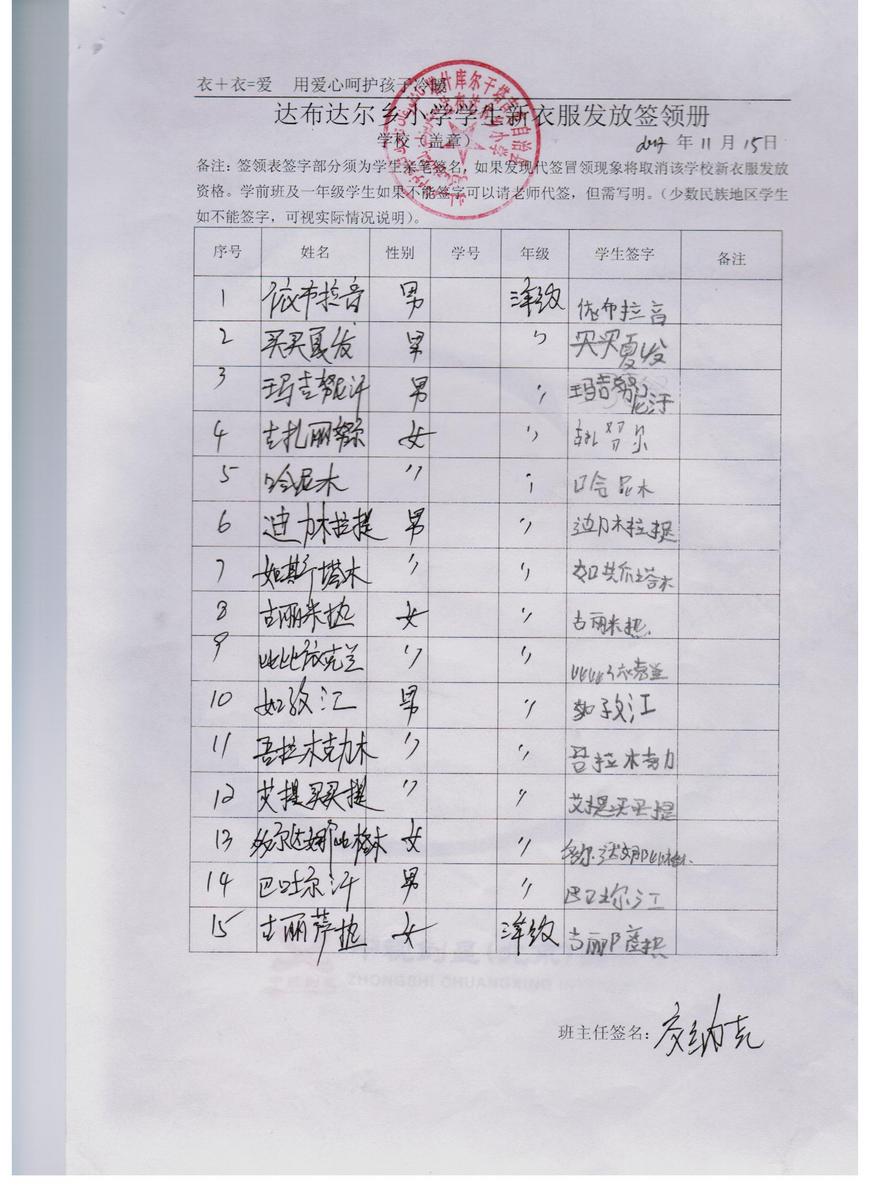 衣＋衣=爱 用爱心呵护孩子冷暖
达布达尔乡小学学生新衣服发放签领册
学校（盖章） 2017 年 11 月 15日
备注：签领表签字部分须为学生亲笔签名，如果发现代签冒领现象将取消该学校新衣服发放
资格。学前班及一年级学生如果不能签字可以请老师代签，但需写明。（少数民族地区学生
如不能签字，可视实际情况说明）。
序号 姓名 性别 学号 年级 学生签字 备注
1 依布拉音 男 依布拉音
2 买买夏发 男 〃 买买夏发
3 玛吉努尼汗 男 〃 玛吉努尼汗
4 古扎丽努尔 女 〃
5 哈尼木 〃 〃 哈尼木
6 迪力木拉提 男 〃 迪力木拉提
7 如斯塔木 〃 〃 如斯塔木
8 古丽米热 女 〃 古丽米热
9 〃 〃
10 如孜江 男 〃 如孜江
11 吾拉木克力木 〃 〃 吾拉木克力
12 艾提买买提 〃 〃 艾提买买提
13 女 〃
14 巴吐尔汗 男 〃 巴吐尔江
15 古丽萨热 女
班主任签名：